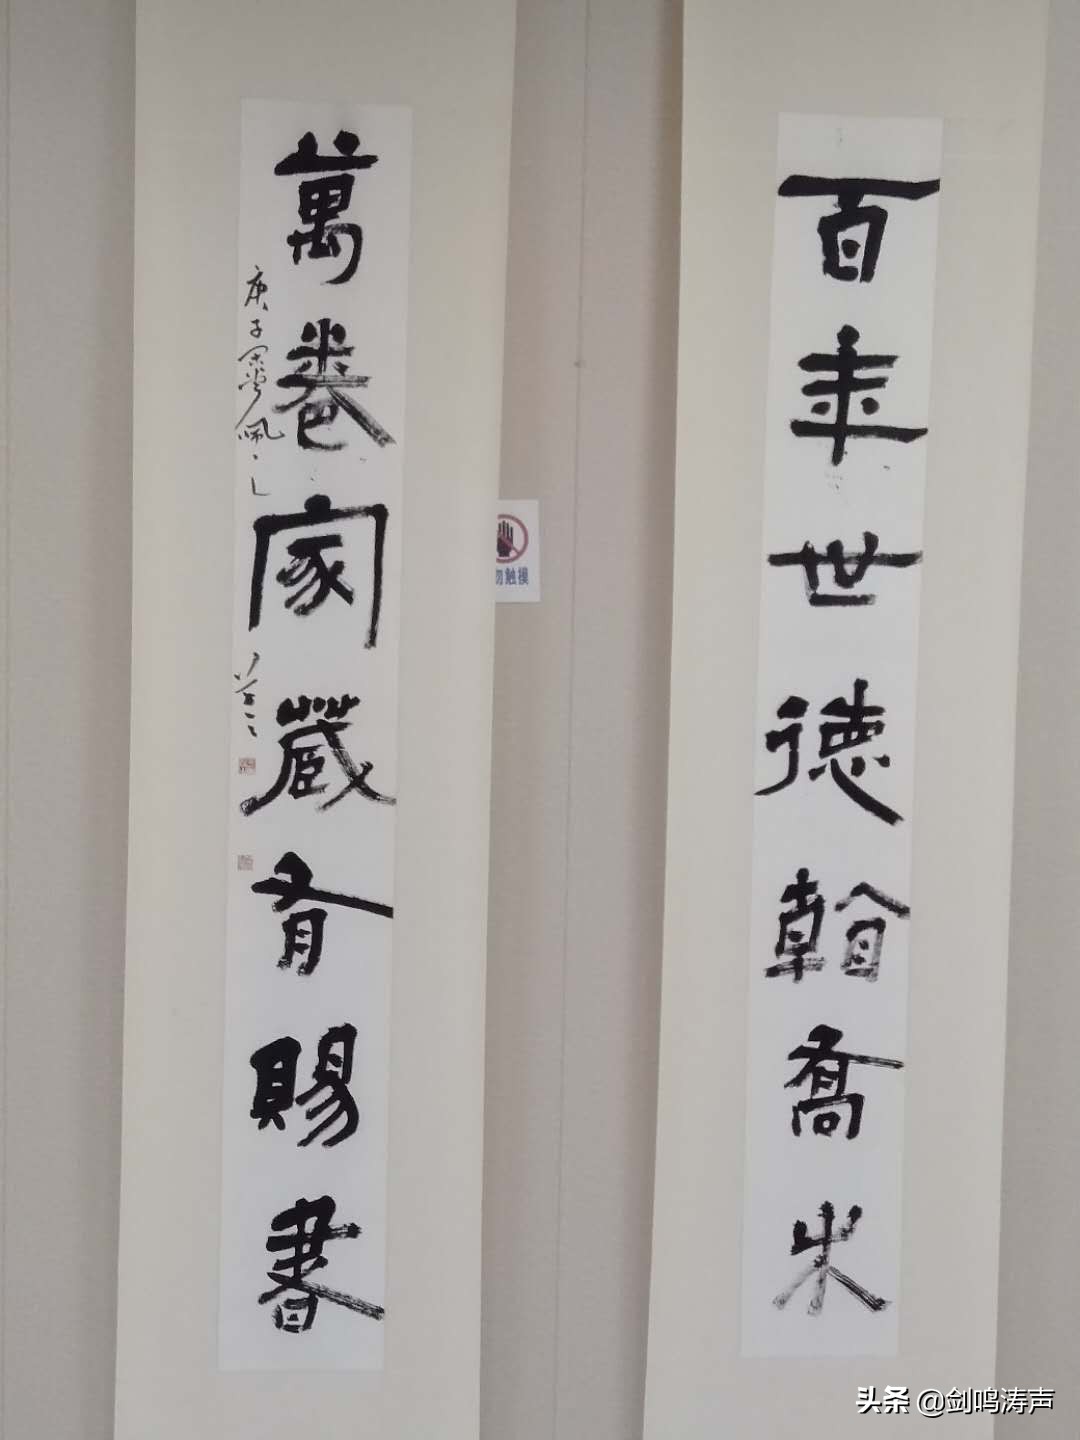 百年世德翰喬木
萬卷家藏有賜書
庚子
勿触摸
头条 @剑鸣涛声